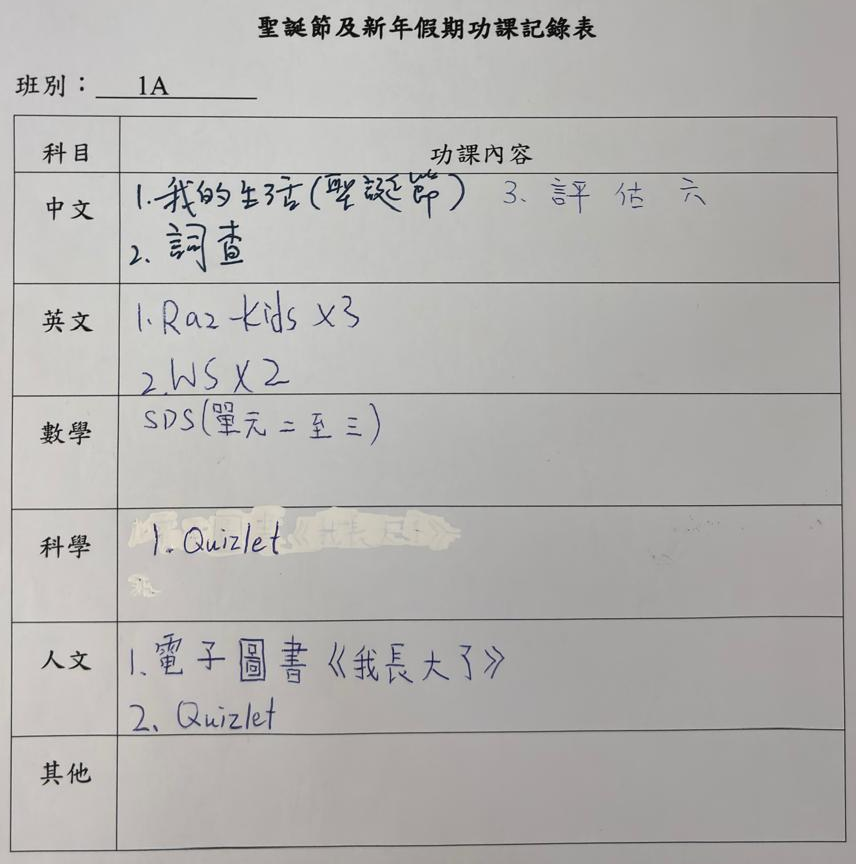 聖誕節及新年假期功課記錄表
班別： 1A
科目 功課內容
中文 1. 我的生活(聖誕節) 3. 評估 六
2. 詞查
英文 1. Raz-kids x3
2. WS x 2
數學 SDS(單元二至三)
科學 1. Quizlet
人文 1. 電子圖書《我長大了》
2. Quizlet
其他